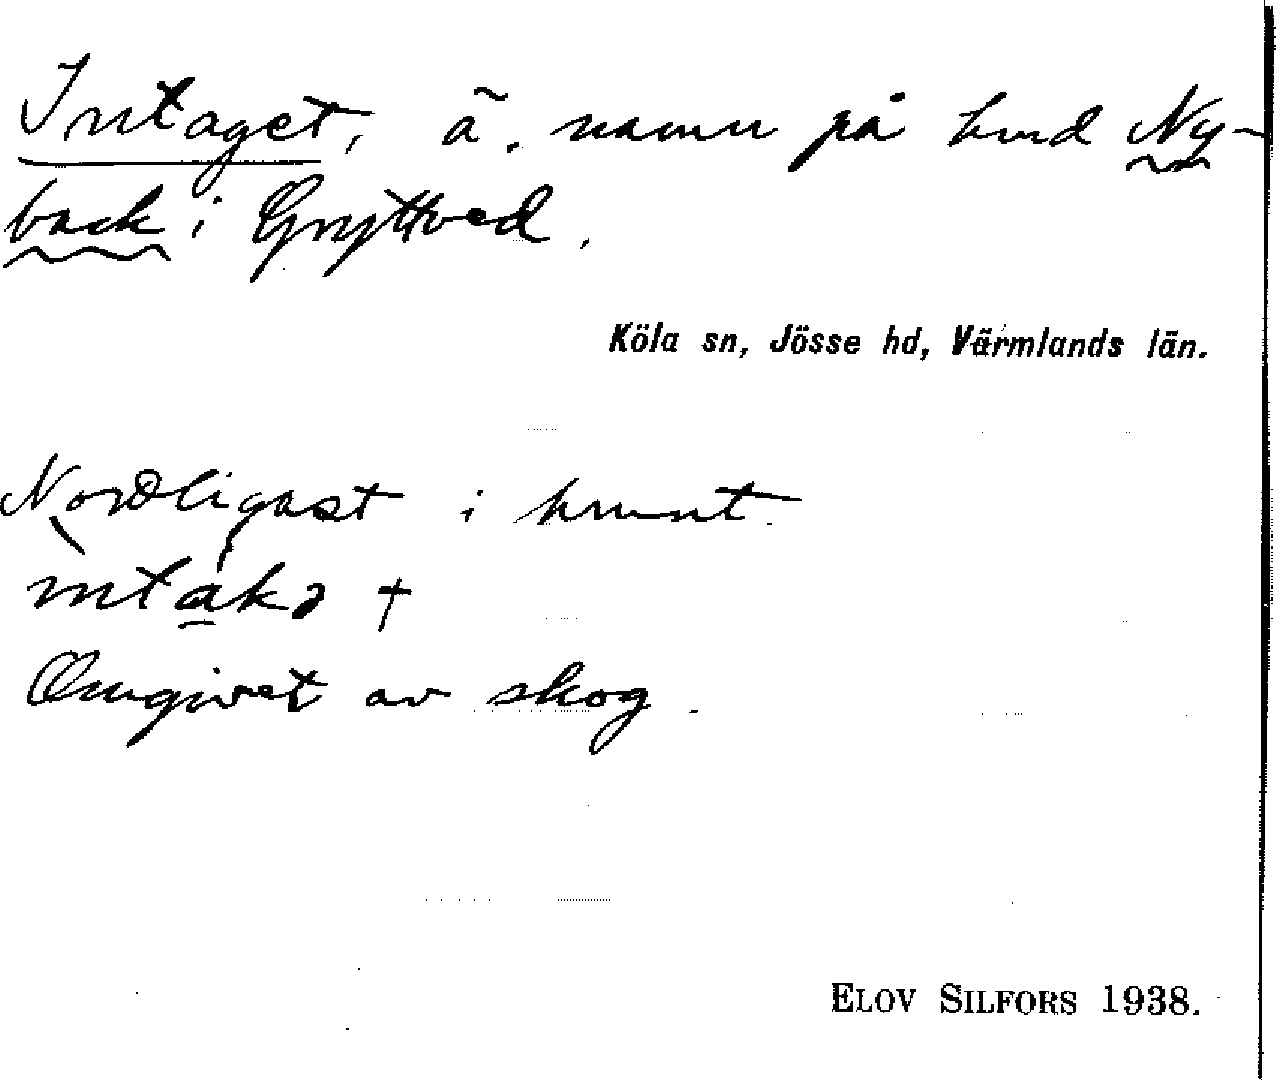 Intaget, ä. namn på hmd Ny-
back i Gryttved.
Köla sn, Jösse hd, Värmlands län.
Nordligast i hmnt.
ìntákə †
Omgivet av skog.
ELOV SILFORS 1938.